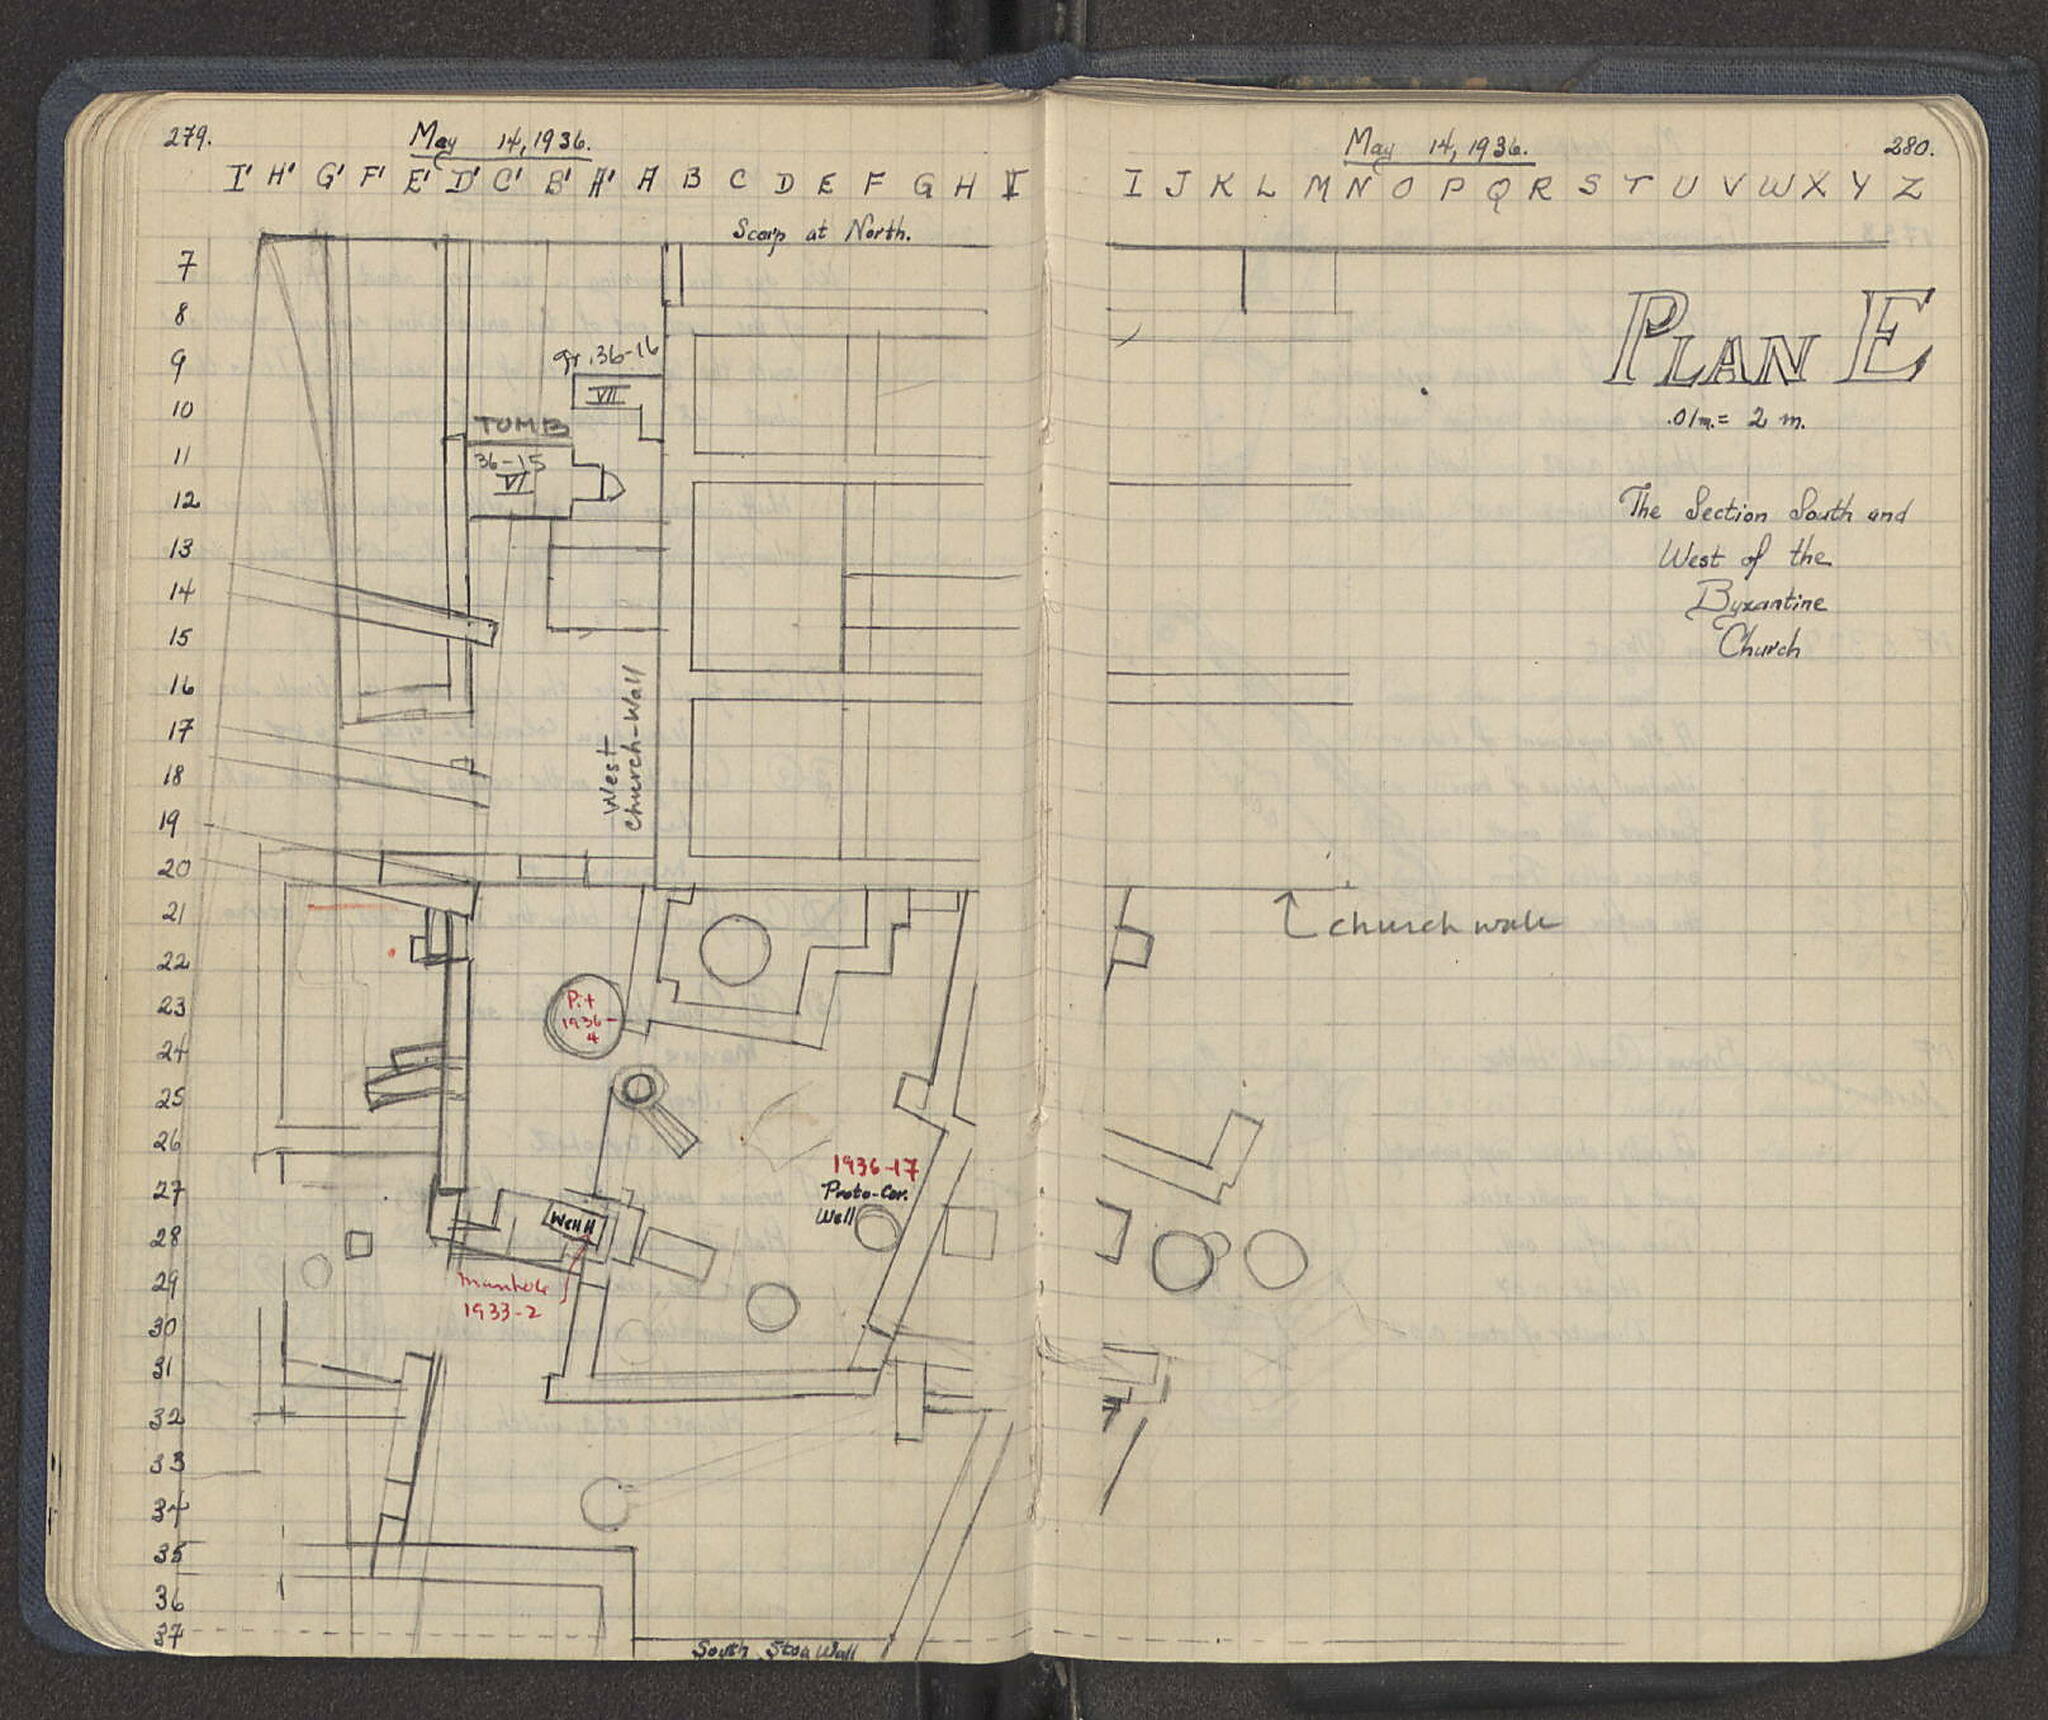 279.
May 14, 1936.
I' H' G' F' E' D' C' B' A' A B C D E F G H I
Scarp at North.
7
8
9
10
11
12
13
14
15
16
17
18
19
20
21
22
23
24
25
26
27
28
29
30
31
32
33
34
35
36
37
gr. 36-16
VII
TOMB
36-15
VI
West
Church-Wall
Pit
1936-
4
1936-17
Proto-Cor.
Well
Well
manhole
1933-2
South Stoa Wall
May 14, 1936.
280.
I J K L M N O P Q R S T U V W X Y Z
PLAN E
.01m. = 2 m.
The Section South and
West of the
Byzantine
Church
church wall